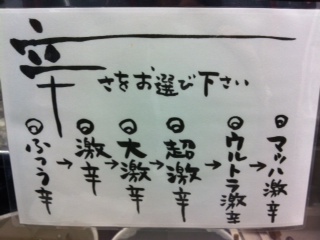 辛さをお選び下さい
◎ふつう辛
→
◎激辛
→
◎大激辛
→
◎超激辛
→
◎ウルトラ激辛
→
◎マッハ激辛